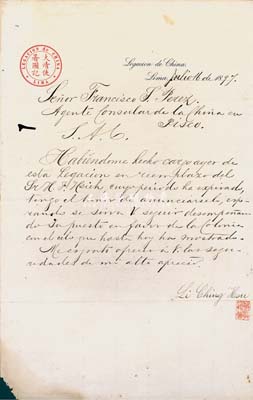 LEGACION DE CHINA
LIMA
Legacion de China.
Lima, Julio 16 de 1897.
Señor Francisco G. Perez
Agente Consular de la China en
Pisco.
S. A. C.
Habiéndome hecho cargo ayer de
esta Legacion en reemplazo del
Sr. cuyo periodo ha expirado,
tengo el honor de anunciárselo, espe-
rando se sirva V seguir desempeñan-
do su puesto en favor de la Colonia
con el celo que hasta hoy ha mostrado.
Me es grato ofrecer á V. las segu-
ridades de mi alto aprecio.
Li Ching